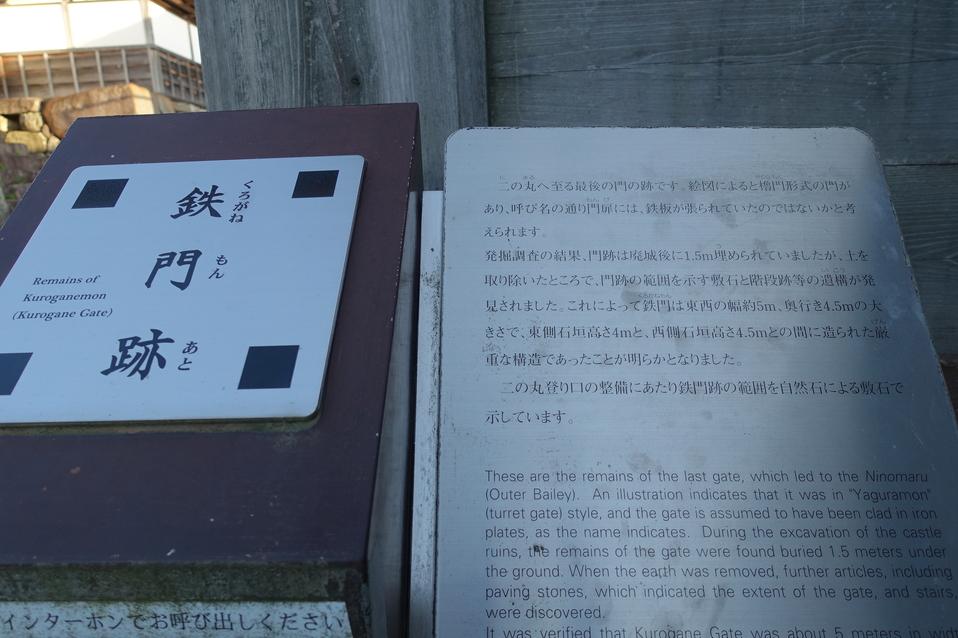 鉄門跡
くろがね
もん
あと
Remains of
Kuroganemon
(Kurogane Gate)
インターホンでお呼び出しください
二の丸へ至る最後の門の跡です。絵図によると櫓門形式の門が
あり、呼び名の通り門扉には、鉄板が張られていたのではないかと考
えられます。
発掘調査の結果、門跡は廃城後に1.5m埋められていましたが、土を
取り除いたところで、門跡の範囲を示す敷石と階段跡等の遺構が発
見されました。これによって鉄門は東西の幅約5m、奥行き4.5mの大
きさで、東側石垣高さ4mと、西側石垣高さ4.5mとの間に造られた厳
重な構造であったことが明らかとなりました。
二の丸登り口の整備にあたり鉄門跡の範囲を自然石による敷石で
示しています。
These are the remains of the last gate, which led to the Ninomaru
(Outer Bailey). An illustration indicates that it was in "Yaguramon"
(turret gate) style, and the gate is assumed to have been clad in iron
plates, as the name indicates. During the excavation of the castle
ruins, the remains of the gate were found buried 1.5 meters under
the ground. When the earth was removed, further articles, including
paving stones, which indicated the extent of the gate, and stairs,
were discovered.
It was verified that Kurogane Gate was about 5 meters in width